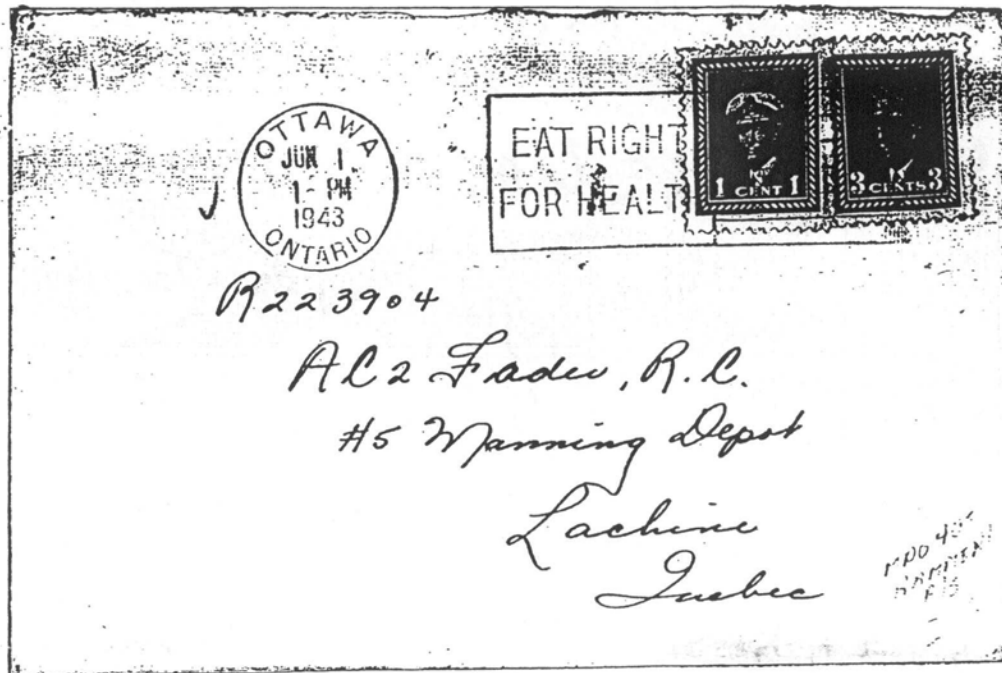 OTTAWA
JUN 1
1 PM
1943
ONTARIO
EAT RIGHT
FOR HEALT
1 CENT 1
3 CENTS 3
R223904
AC2 Fader, R.C.
#5 Manning Depot
Lachine
Quebec
MPO